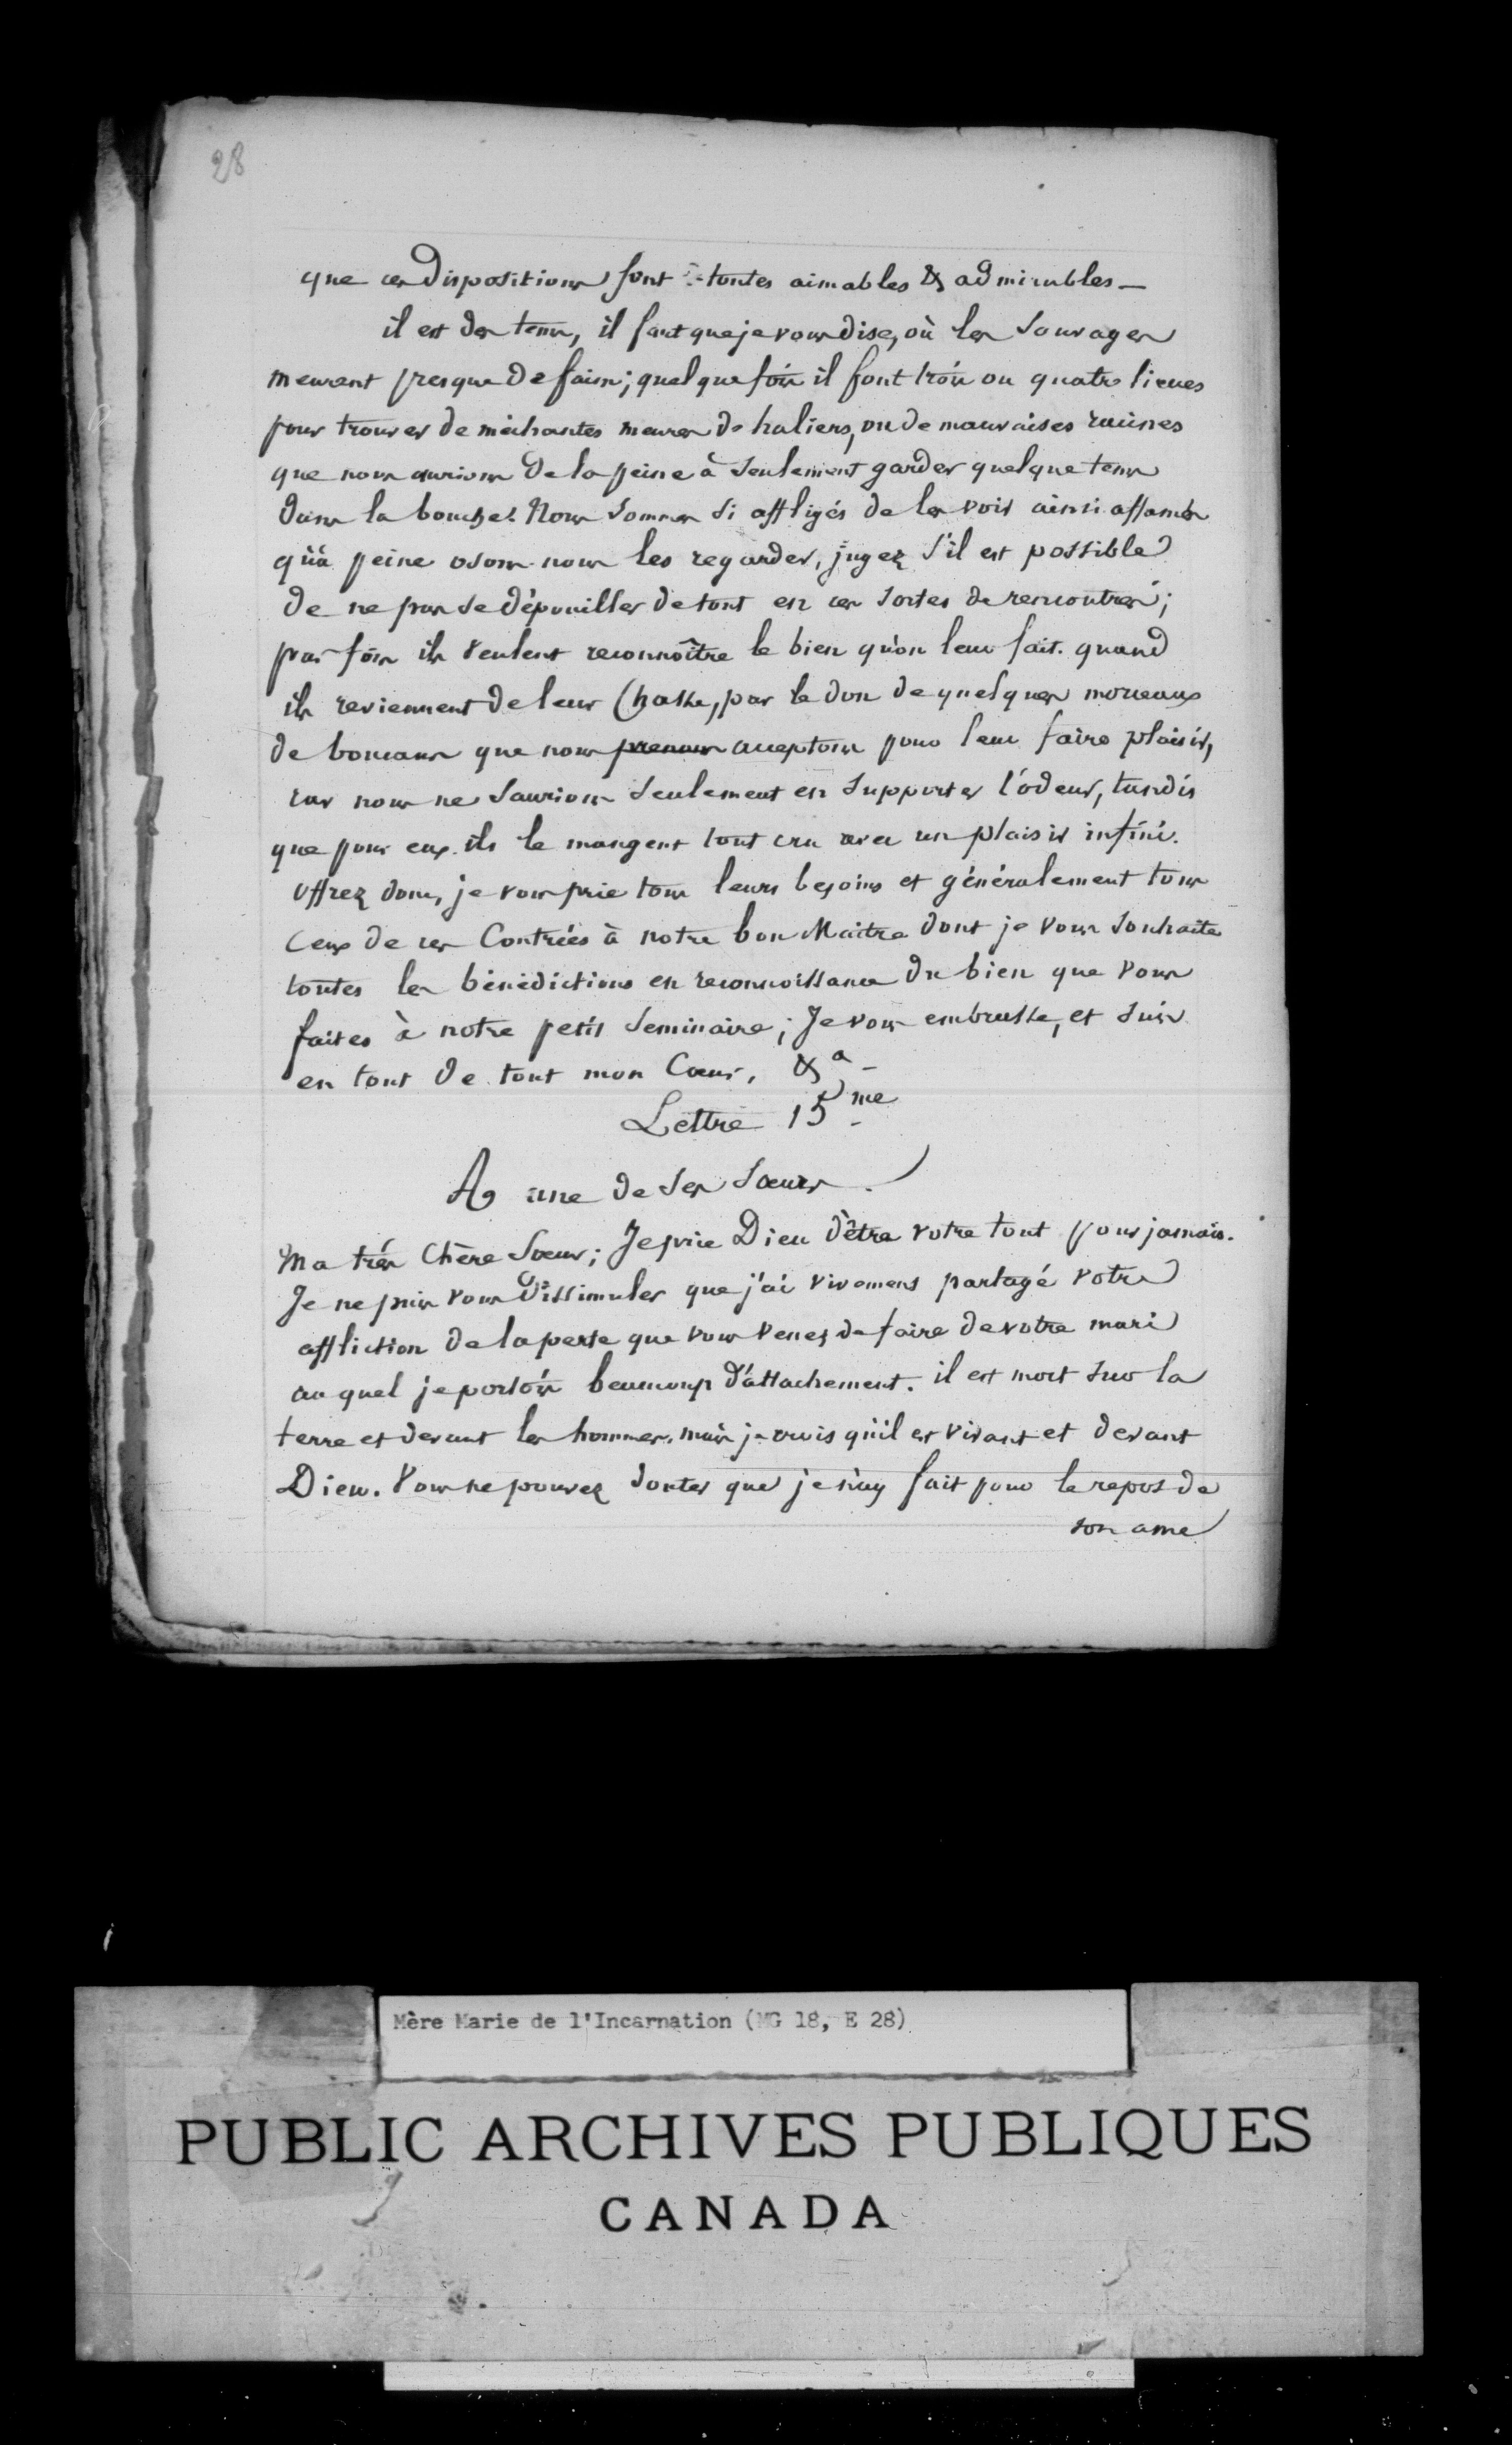 28
que ces dispositions sont toutes aimables & admirables —
il est des tems, il faut que je vous dise, où les Sauvages
meurent presque de faim; quelque fois il font trois ou quatre lieues
pour trouver de méchantes meures de haliers, ou de mauvaises racines
que nous aurions de la peine à seulement garder quelque tems
dans la bouche. Nous sommes si affligés de les voir ainsi affamés
qu'à peine osons nous les regarder, jugez s'il est possible
de ne pas se dépouiller de tout en ces sortes de rencontres;
par fois ils veulent reconnoître le bien qu'on leur fait. quand
ils reviennent de leur Chasse, par le don de quelques morceaux
de boucans que nous prenons acceptons pour leur faire plaisir,
car nous ne saurions seulement en supporter l'odeur, tandis
que pour eux ils le mangent tout cru avec un plaisir infini.
offrez donc, je vous prie tous leurs besoins et généralement tous
ceux de ces Contrées à notre bon Maitre dont je vous souhaite
toutes les bénédictions en reconnoissance du bien que vous
faites à notre petit Seminaire; Je vous embrasse, et suis
en tout de tout mon Coeur, &a —
Lettre 15me
A une de ses Soeurs.
Ma très Chère Soeur; Je prie Dieu d'être votre tout pour jamais.
Je ne puis vous dissimuler que j'ai vivement partagé votre
affliction de la perte que vous venez de faire de votre mari
au quel je portois beaucoup d'attachement. il est mort sur la
terre et devant les hommes, mais je crois qu'il est vivant et devant
Dieu. Vous ne pouvez douter que je n'ay fait pour le repos de
son ame
Mère Marie de l'Incarnation (MG 18, E 28)
PUBLIC ARCHIVES PUBLIQUES
CANADA